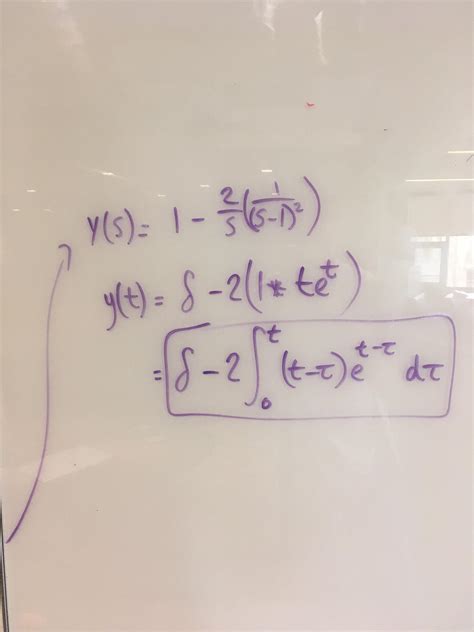 y(s) = 1 - 2/s (1/(s-1)²)
y(t) = δ - 2(1 * te^t)
= δ - 2 ∫₀^t (t-τ)e^(t-τ) dτ